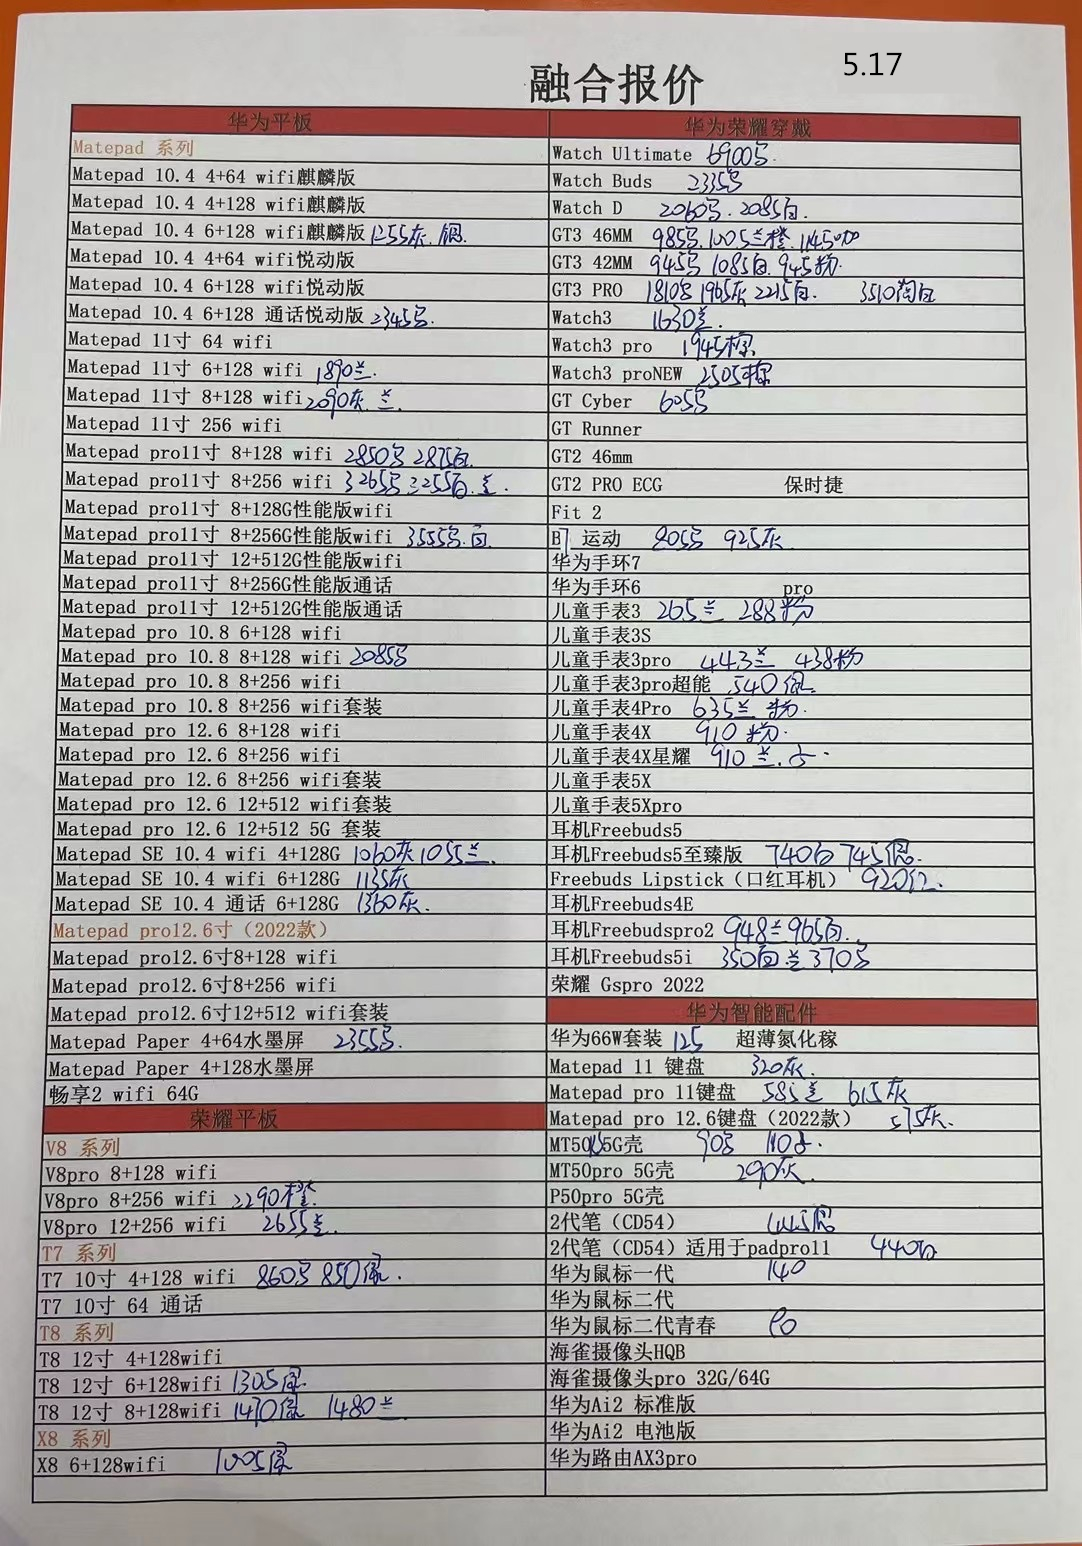 5.17
融合报价
华为平板
Matepad 系列
Matepad 10.4 4+64 wifi麒麟版
Matepad 10.4 4+128 wifi麒麟版
Matepad 10.4 6+128 wifi麒麟版 1255灰.
Matepad 10.4 4+64 wifi悦动版
Matepad 10.4 6+128 wifi悦动版
Matepad 10.4 6+128 通话悦动版 2345
Matepad 11寸 64 wifi
Matepad 11寸 6+128 wifi 1890兰.
Matepad 11寸 8+128 wifi 2090灰.兰.
Matepad 11寸 256 wifi
Matepad pro11寸 8+128 wifi 2850 2875白.
Matepad pro11寸 8+256 wifi 3265 3255白.兰.
Matepad pro11寸 8+128G性能版wifi
Matepad pro11寸 8+256G性能版wifi 3555 白.
Matepad pro11寸 12+512G性能版wifi
Matepad pro11寸 8+256G性能版通话
Matepad pro11寸 12+512G性能版通话
Matepad pro 10.8 6+128 wifi
Matepad pro 10.8 8+128 wifi 2085
Matepad pro 10.8 8+256 wifi
Matepad pro 10.8 8+256 wifi套装
Matepad pro 12.6 8+128 wifi
Matepad pro 12.6 8+256 wifi
Matepad pro 12.6 8+256 wifi套装
Matepad pro 12.6 12+512 wifi套装
Matepad pro 12.6 12+512 5G 套装
Matepad SE 10.4 wifi 4+128G 1060灰 1055兰.
Matepad SE 10.4 wifi 6+128G 1135灰
Matepad SE 10.4 通话 6+128G 1360灰.
Matepad pro12.6寸（2022款）
Matepad pro12.6寸8+128 wifi
Matepad pro12.6寸8+256 wifi
Matepad pro12.6寸12+512 wifi套装
Matepad Paper 4+64水墨屏 2355
Matepad Paper 4+128水墨屏
畅享2 wifi 64G
荣耀平板
V8 系列
V8pro 8+128 wifi
V8pro 8+256 wifi 2290橙.
V8pro 12+256 wifi 2655兰.
T7 系列
T7 10寸 4+128 wifi 860 850
T7 10寸 64 通话
T8 系列
T8 12寸 4+128wifi
T8 12寸 6+128wifi 1305
T8 12寸 8+128wifi 1470 1480兰
X8 系列
X8 6+128wifi 1005
华为荣耀穿戴
Watch Ultimate 6900
Watch Buds 2335
Watch D 2060 2085白.
GT3 46MM 985 1005兰橙. 1145咖
GT3 42MM 945 1085白. 945粉.
GT3 PRO 1810 1965灰 2215白. 3510陶白
Watch3 1630兰.
Watch3 pro 1945棕.
Watch3 proNEW 2505棕
GT Cyber 605
GT Runner
GT2 46mm
GT2 PRO ECG 保时捷
Fit 2
B7 运动 805 925灰.
华为手环7
华为手环6 pro
儿童手表3 265兰 288粉
儿童手表3S
儿童手表3pro 443兰 438粉
儿童手表3pro超能 540
儿童手表4Pro 635兰 粉.
儿童手表4X 910粉.
儿童手表4X星耀 910兰.
儿童手表5X
儿童手表5Xpro
耳机Freebuds5
耳机Freebuds5至臻版 740白 745
Freebuds Lipstick（口红耳机） 920红.
耳机Freebuds4E
耳机Freebudspro2 948兰 965白.
耳机Freebuds5i 350白兰 370
荣耀 Gspro 2022
华为智能配件
华为66W套装 125 超薄氮化稼
Matepad 11 键盘 320灰.
Matepad pro 11键盘 585兰 615灰
Matepad pro 12.6键盘（2022款） 575灰.
MT50 5G壳 90 110
MT50pro 5G壳 290灰.
P50pro 5G壳
2代笔（CD54）
2代笔（CD54）适用于padpro11 440白
华为鼠标一代 140
华为鼠标二代
华为鼠标二代青春 90
海雀摄像头HQB
海雀摄像头pro 32G/64G
华为Ai2 标准版
华为Ai2 电池版
华为路由AX3pro